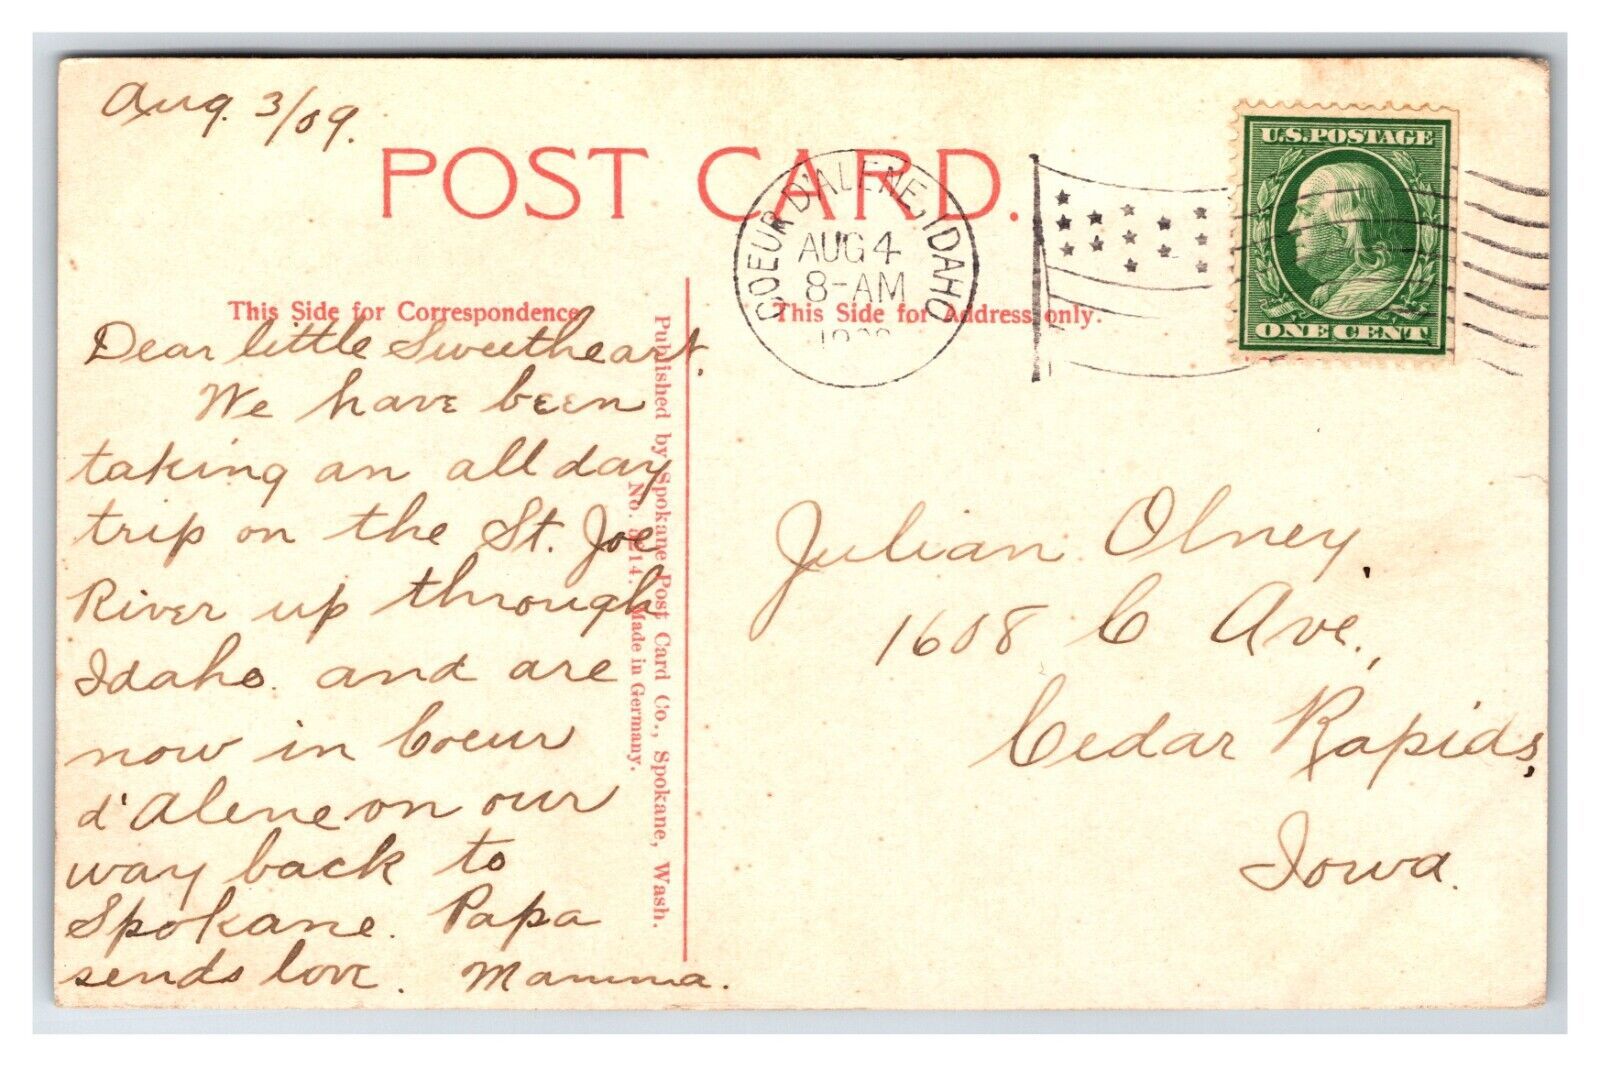 Aug. 3/09.
POST CARD.
COEUR D'ALENE, IDAHO
AUG 4
8-AM
U.S. POSTAGE
ONE CENT
This Side for Correspondence
This Side for Address only.
Dear little Sweetheart,
We have been
taking an all day
trip on the St. Joe
River up through
Idaho. and are
now in Coeur
d'Alene on our
way back to
Spokane. Papa
sends love. Mamma.
Published by Spokane Post Card Co., Spokane, Wash.
Made in Germany.
Julian Olney,
1608 C Ave.,
Cedar Rapids,
Iowa.